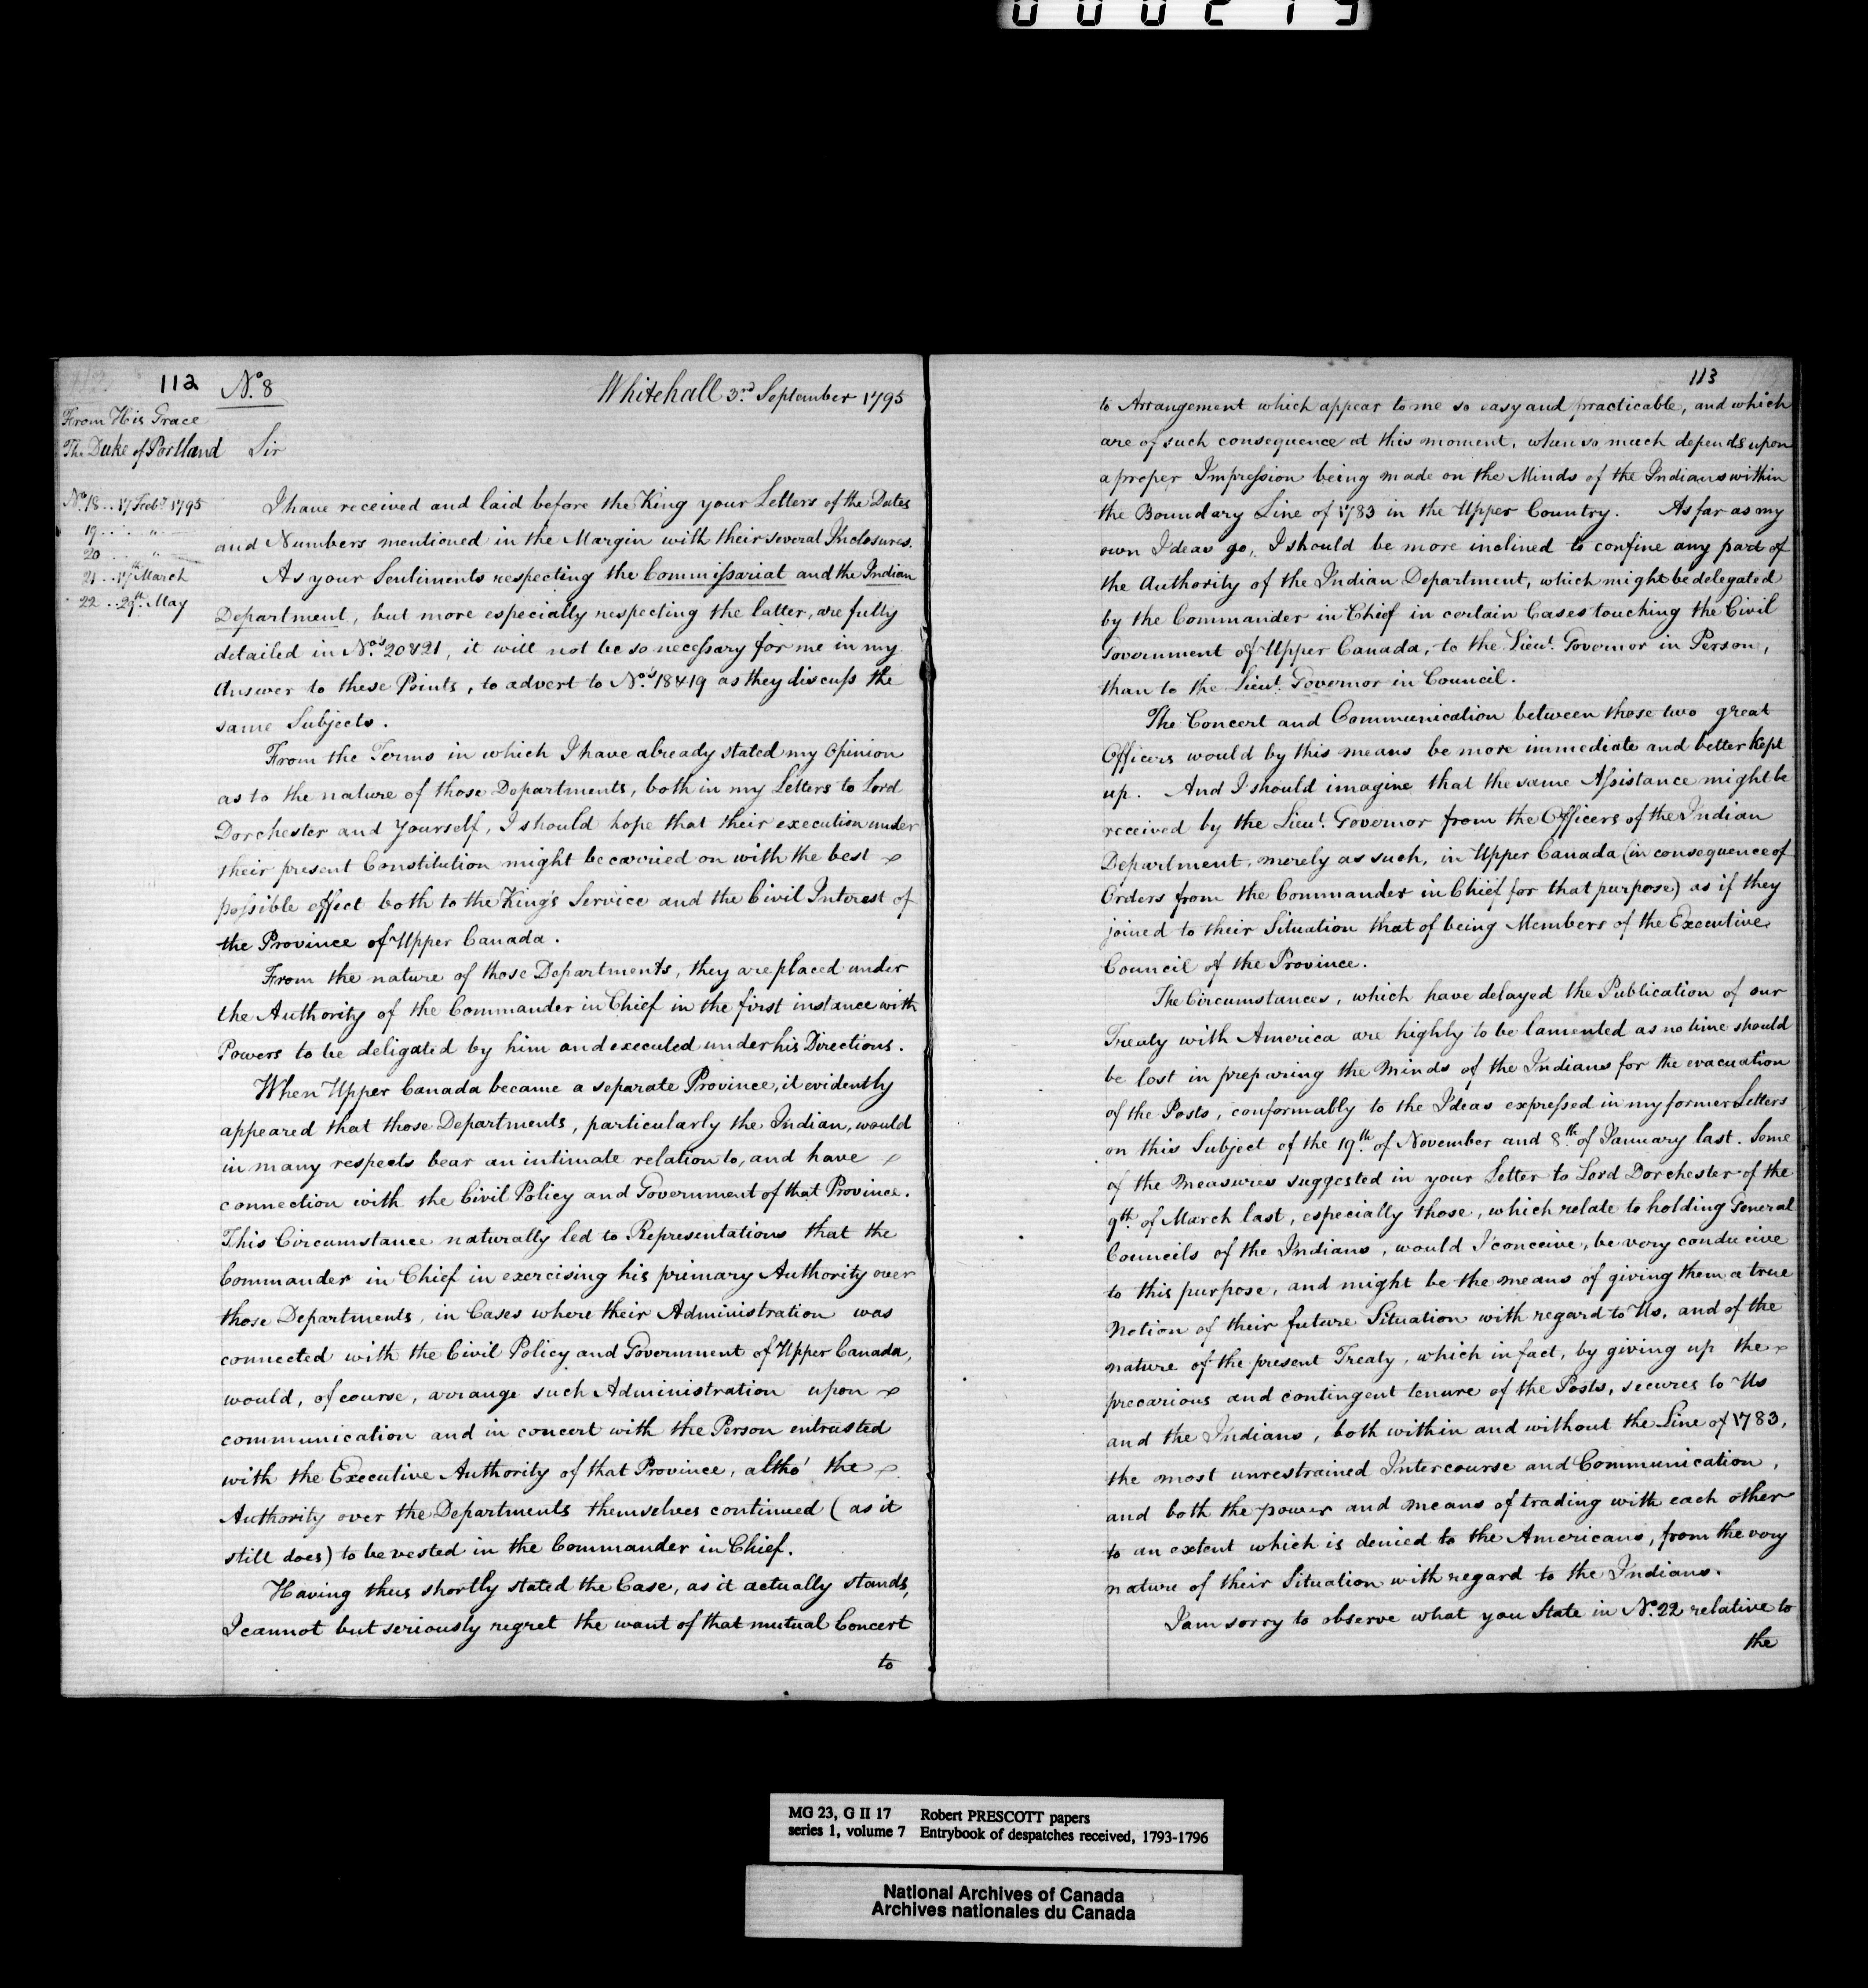 000219
112 No. 8 Whitehall 3rd September 1795
From His Grace
The Duke of Portland Sir
No. 18 .. 17 Feby. 1795
19 .. "
20 .. "
21 .. 17th March
22 .. 29th. May
I have received and laid before the King your Letters of the Dates
and Numbers mentioned in the Margin with their several Inclosures.
As your Sentiments respecting the Commissariat and the Indian
Department, but more especially respecting the latter, are fully
detailed in Nos. 20 & 21, it will not be so necessary for me in my
Answer to these Points, to advert to Nos. 18 & 19 as they discuss the
same Subjects.
From the Terms in which I have already stated my Opinion
as to the nature of those Departments, both in my Letters to Lord
Dorchester and Yourself, I should hope that their execution under
their present Constitution might be carried on with the best
possible effect both to the King's Service and the Civil Interest of
the Province of Upper Canada.
From the nature of those Departments, they are placed under
the Authority of the Commander in Chief in the first instance with
Powers to be deligated by him and executed under his Directions.
When Upper Canada became a separate Province, it evidently
appeared that those Departments, particularly the Indian, would
in many respects bear an intimate relation to, and have
connection with the Civil Policy and Government of that Province.
This Circumstance naturally led to Representations that the
Commander in Chief in exercising his primary Authority over
those Departments, in Cases where their Administration was
connected with the Civil Policy and Government of Upper Canada,
would, of course, arrange such Administration upon
communication and in concert with the Person entrusted
with the Executive Authority of that Province, altho' the
Authority over the Departments themselves continued (as it
still does) to be vested in the Commander in Chief.
Having thus shortly stated the Case, as it actually stands,
I cannot but seriously regret the want of that mutual Concert
to
113
to Arrangement which appear to me so easy and practicable, and which
are of such consequence at this moment, when so much depends upon
a proper Impression being made on the Minds of the Indians within
the Boundary Line of 1783 in the Upper Country. As far as my
own Ideas go, I should be more inclined to confine any part of
the Authority of the Indian Department, which might be delegated
by the Commander in Chief in certain Cases touching the Civil
Government of Upper Canada, to the Lieut. Governor in Person,
than to the Lieut. Governor in Council.
The Concert and Communication between those two great
Officers would by this means be more immediate and better kept
up. And I should imagine that the same Assistance might be
received by the Lieut. Governor from the Officers of the Indian
Department, merely as such, in Upper Canada (in consequence of
Orders from the Commander in Chief for that purpose) as if they
joined to their Situation that of being Members of the Executive
Council of the Province.
The Circumstances, which have delayed the Publication of our
Treaty with America are highly to be lamented as no time should
be lost in preparing the Minds of the Indians for the evacuation
of the Posts, conformably to the Ideas expressed in my former Letters
on this Subject of the 19th. of November and 8th of January last. Some
of the Measures suggested in your Letter to Lord Dorchester of the
9th. of March last, especially those, which relate to holding General
Councils of the Indians, would I conceive, be very conducive
to this purpose, and might be the means of giving them a true
Notion of their future Situation with regard to Us, and of the
nature of the present Treaty, which in fact, by giving up the
precarious and contingent tenure of the Posts, secures to Us
and the Indians, both within and without the Line of 1783,
the most unrestrained Intercourse and Communication,
and both the power and means of trading with each other
to an extent which is denied to the Americans, from the very
nature of their Situation with regard to the Indians.
I am sorry to observe what you State in No. 22 relative to
the
MG 23, G II 17 Robert PRESCOTT papers
series 1, volume 7 Entrybook of despatches received, 1793-1796
National Archives of Canada
Archives nationales du Canada